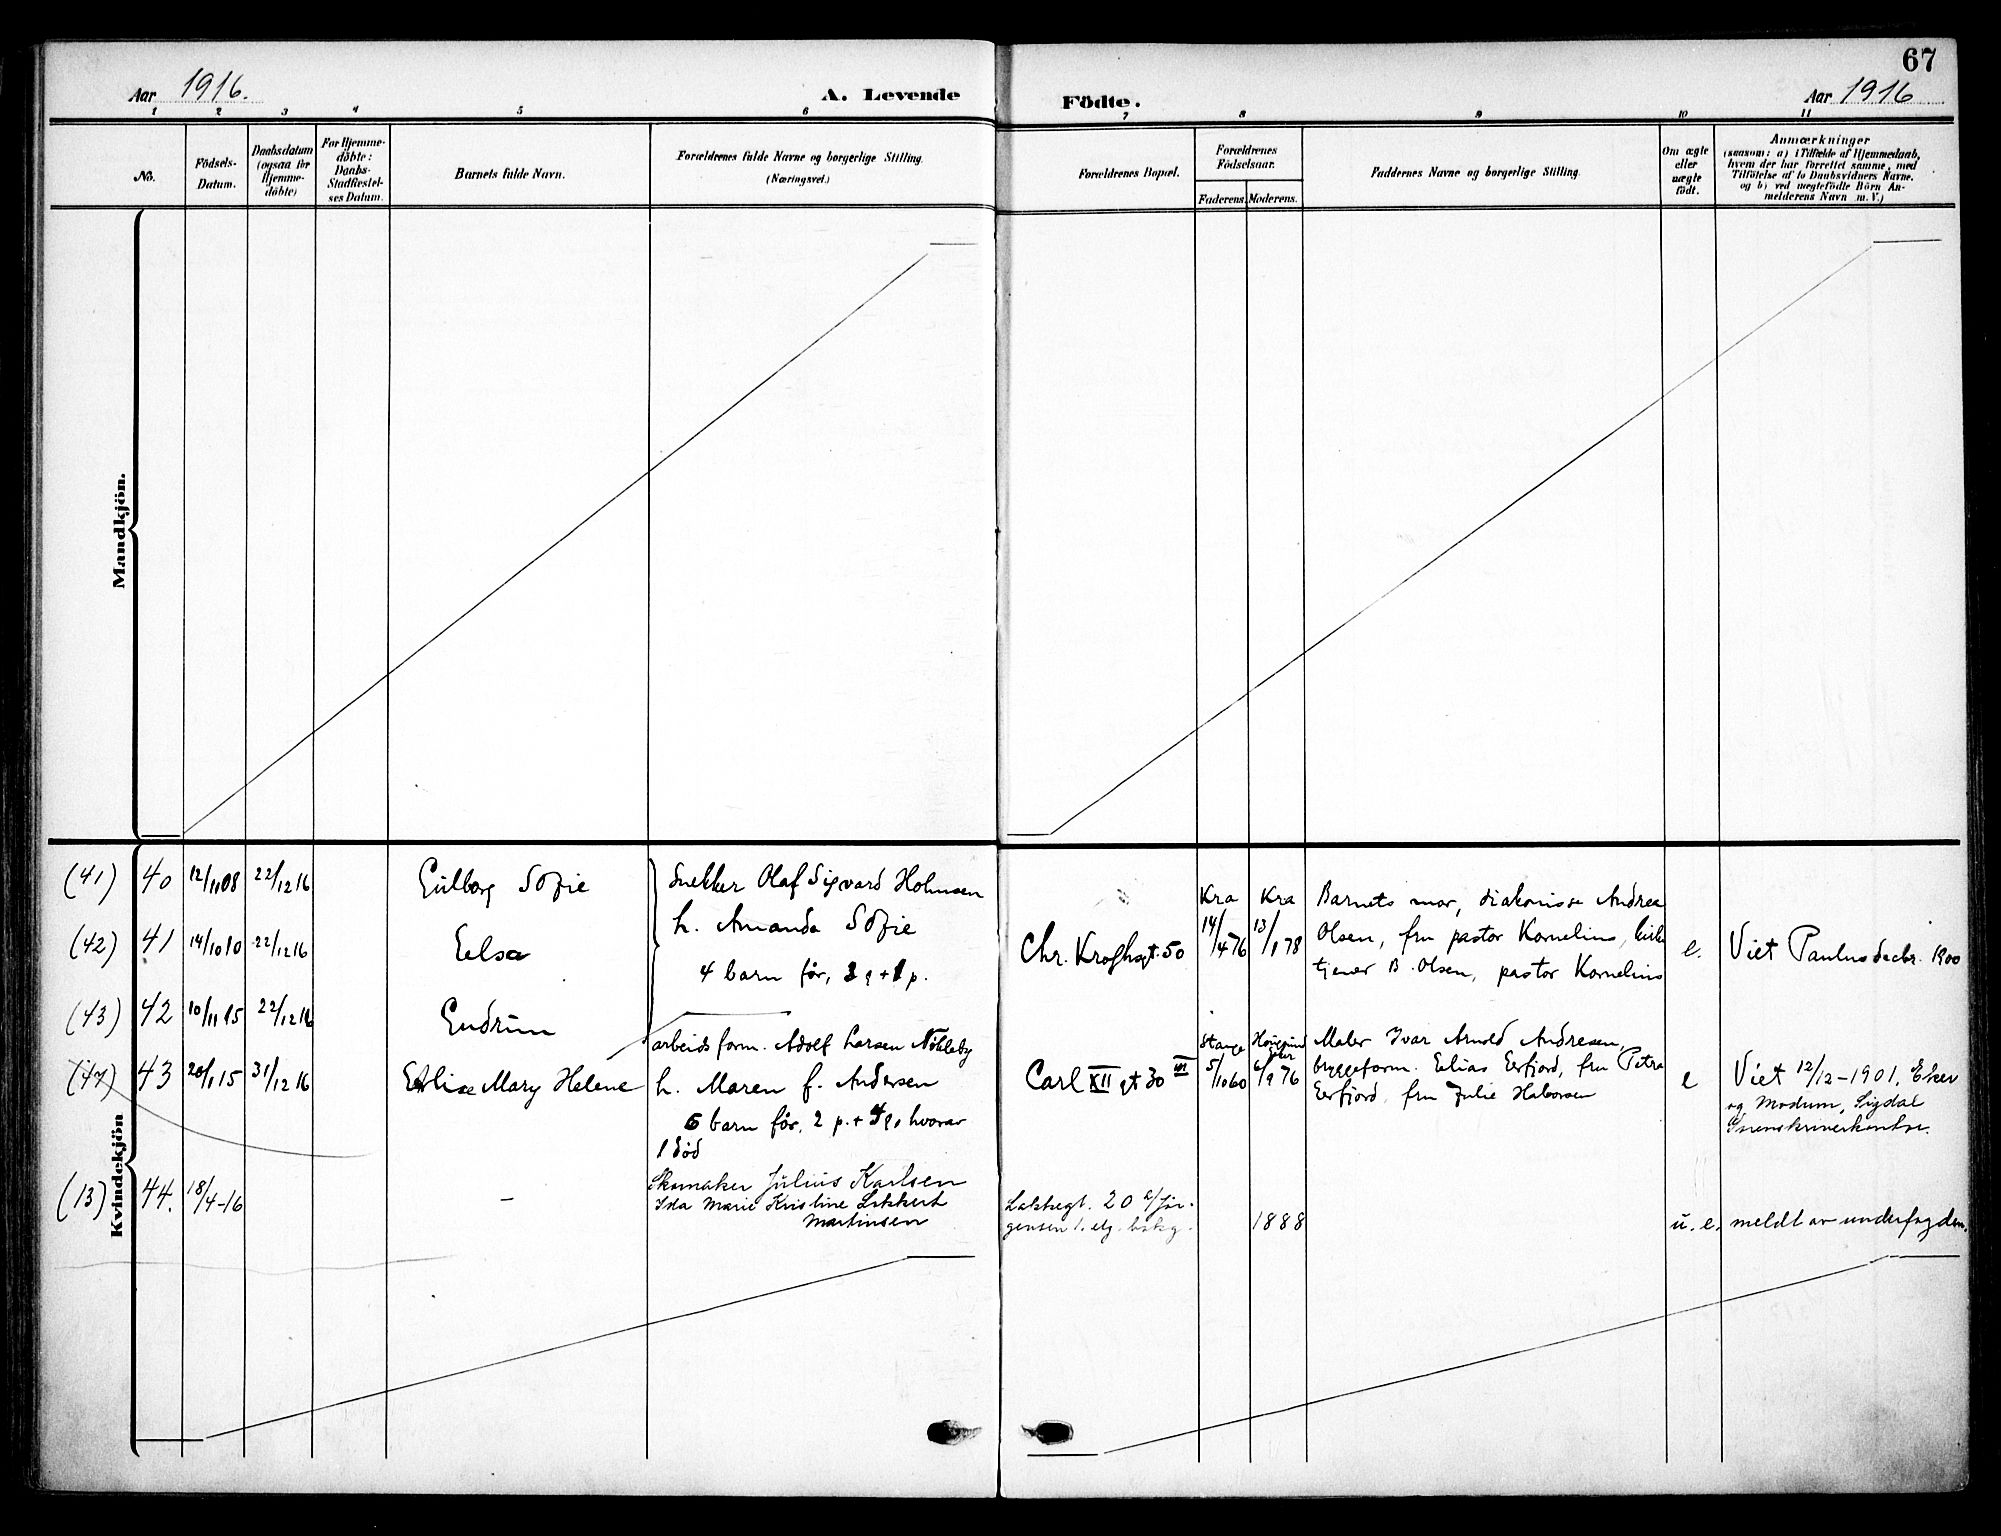 67
Aar 1916.
A. Levende
Födte.
Aar 1916
1 2 3 4 5 6 7 8 9 10 11
No.
Födsels-
Datum.
Daabsdatum
(ogsaa for
Hjemme-
döbte)
For Hjemme-
döbte:
Daabs-
Stadfæstel-
ses Datum.
Barnets fulde Navn.
Forældrenes fulde Navne og borgerlige Stilling.
(Næringsvei.)
Forældrenes Bopæl.
Forældrenes
Födselsaar.
Faderens.
Moderens.
Faddernes Navne og borgerlige Stilling.
Om ægte
eller
uægte
födt.
Anmærkninger
(saasom: a) i Tilfælde af Hjemmedaab,
hvem der har forrettet samme, med
Tilföielse af to Daabsvidners Navne.
og b) ved uægtefödte Börn An-
melderens Navn m. V.)
Mandkjön.
Kvindekjön
(41) 40 12/11 08 22/12 16
Sofie
Snekker Olaf Sigvard Holmsen
h. Amanda Sofie
4 barn før,
(42) 41 14/10 10 22/12 16
Chr. Kroghsgt. 50
Kra
14/4 76
Kra
13/1 78
Barnets mor, diakonisse Andrea
Olsen, fru pastor Kornelius, kirke
tjener B. Olsen, pastor Kornelius
e.
Viet Paulus decbr. 1900
(43) 42 10/11 15 22/12 16
Gudrun
(47) 43 20/1 15 31/12 16
Mary Helene
arbeidsform. Adolf Larsen Nökleby
h. Maren f. Andersen
6 barn før, 2 p. + 4 g, hvorav
1 död
Carl XII gt 30 III
Stange
5/10 60
6/9 76
Maler Ivar Arnold Andresen,
byggeform. Elias Eerfjord, fru Petra
Eerfjord, fru Julie Halvorsen
e
Viet 12/12-1901. Eker
og Modum, Sigdal
Sorenskriverkontor.
(13) 44. 18/4-16
–
Skomaker Julius Karlsen
Ida Marie Kristine Lekkert
Martinsen
Lakkegt. 20 a/Jør-
gensen 1. etg. bakg.
1888
u. e.
meldt av underfogden.